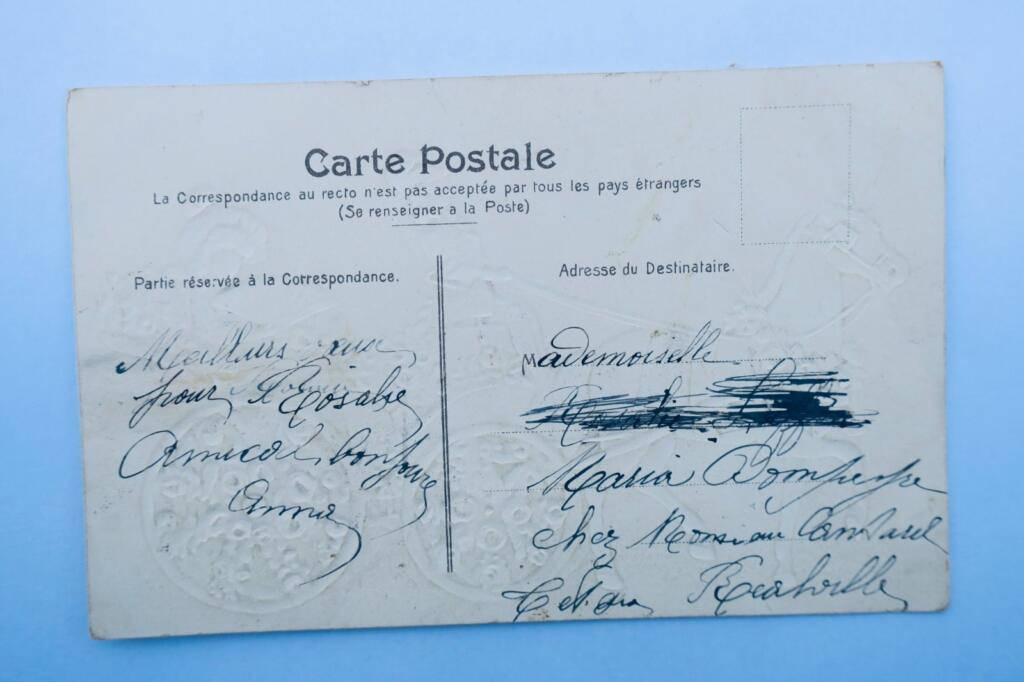 Carte Postale
La Correspondance au recto n'est pas acceptée par tous les pays étrangers
(Se renseigner a la Poste)
Partie réservée à la Correspondance.
Adresse du Destinataire.
Meilleurs
pour
Amical bonjour
Anna
Mademoiselle
Maria
chez Monsieur
Realville